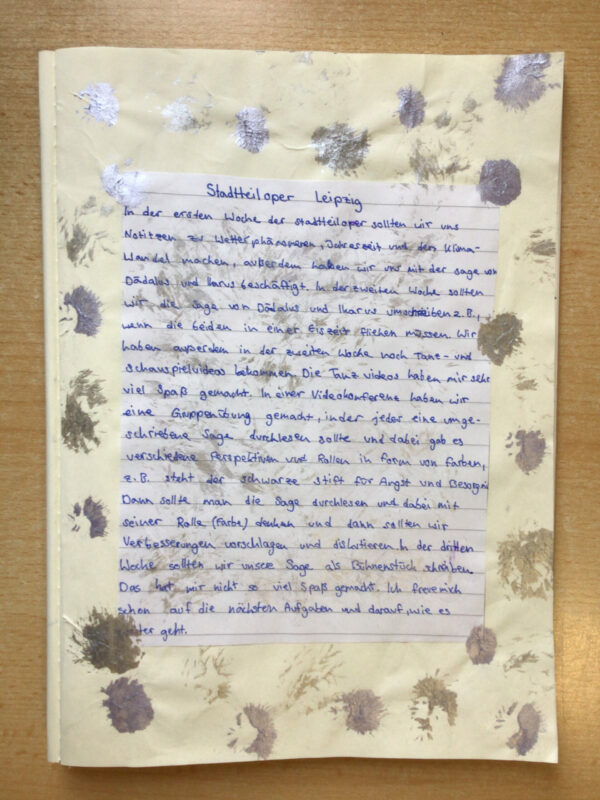 Stadtteiloper Leipzig
In der ersten Woche der Stadtteiloper sollten wir uns
Notitzen zu Wetterphänomenen, Jahreszeit und den Klima-
Wandel machen, außerdem haben wir uns mit der Sage von
Dädalus und Ikarus beschäftigt. In der zweiten Woche sollten
wir die Sage von Dädalus und Ikarus umschreiben z.B.,
wenn die beiden in einer Eiszeit fliehen müssen. Wir
haben außerdem in der zweiten Woche noch Tanz- und
Schauspielvideos bekommen. Die Tanz videos haben mir sehr
viel Spaß gemacht. In einer Videokonferenz haben wir
eine Gruppenübung gemacht, in der jeder eine umge-
schriebene Sage durchlesen sollte und dabei gab es
verschiedene Perspektiven und Rollen in form von farben,
z.B. steht der schwarze stift für Angst und Besorgnis
Dann sollte man die Sage durchlesen und dabei mit
seiner Rolle (farbe) denken und dann sollten wir
Verbesserungen vorschlagen und diskutieren. In der dritten
Woche sollten wir unsere Sage als Bühnenstück schreiben.
Das hat mir nicht so viel Spaß gemacht. Ich freue mich
schon auf die nächsten Aufgaben und darauf, wie es
weiter geht.